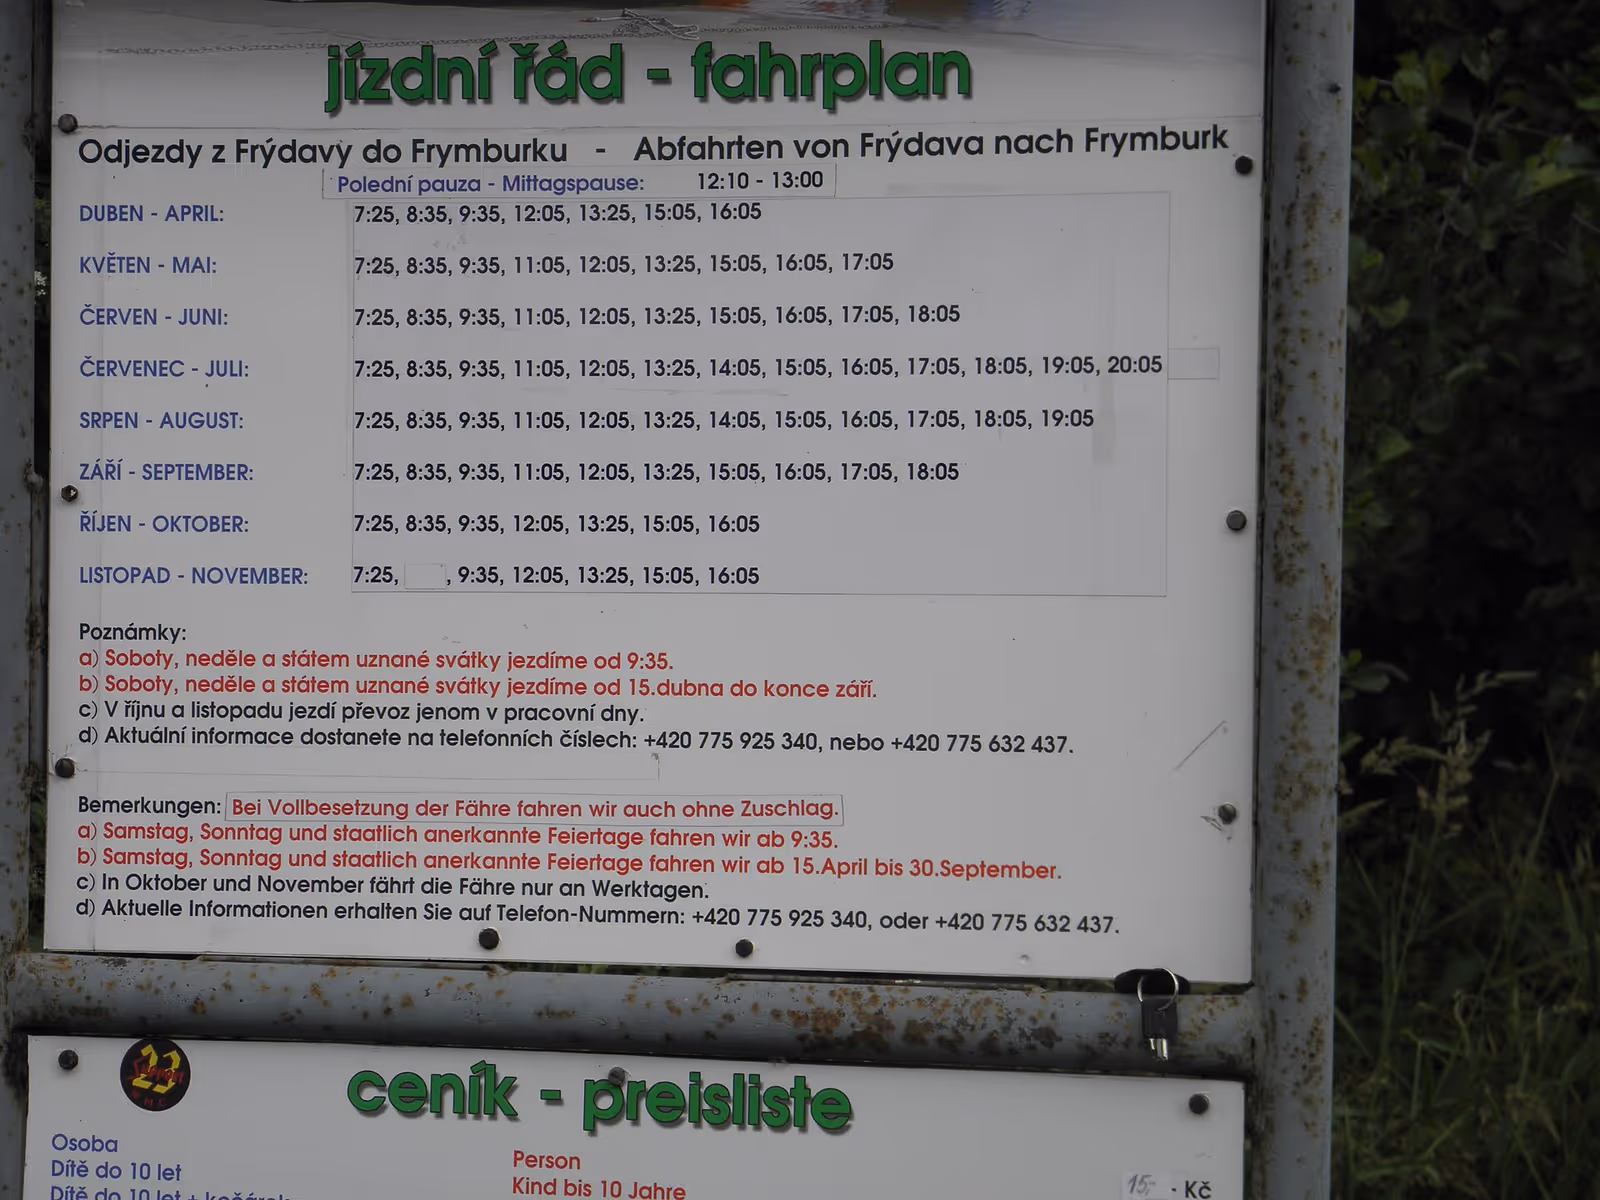 jízdní řád - fahrplan
Odjezdy z Frýdavy do Frymburku - Abfahrten von Frýdava nach Frymburk
Polední pauza - Mittagspause: 12:10 - 13:00
DUBEN - APRIL: 7:25, 8:35, 9:35, 12:05, 13:25, 15:05, 16:05
KVĚTEN - MAI: 7:25, 8:35, 9:35, 11:05, 12:05, 13:25, 15:05, 16:05, 17:05
ČERVEN - JUNI: 7:25, 8:35, 9:35, 11:05, 12:05, 13:25, 15:05, 16:05, 17:05, 18:05
ČERVENEC - JULI: 7:25, 8:35, 9:35, 11:05, 12:05, 13:25, 14:05, 15:05, 16:05, 17:05, 18:05, 19:05, 20:05
SRPEN - AUGUST: 7:25, 8:35, 9:35, 11:05, 12:05, 13:25, 14:05, 15:05, 16:05, 17:05, 18:05, 19:05
ZÁŘÍ - SEPTEMBER: 7:25, 8:35, 9:35, 11:05, 12:05, 13:25, 15:05, 16:05, 17:05, 18:05
ŘÍJEN - OKTOBER: 7:25, 8:35, 9:35, 12:05, 13:25, 15:05, 16:05
LISTOPAD - NOVEMBER: 7:25, , 9:35, 12:05, 13:25, 15:05, 16:05
Poznámky:
a) Soboty, neděle a státem uznané svátky jezdíme od 9:35.
b) Soboty, neděle a státem uznané svátky jezdíme od 15.dubna do konce září.
c) V říjnu a listopadu jezdí převoz jenom v pracovní dny.
d) Aktuální informace dostanete na telefonních číslech: +420 775 925 340, nebo +420 775 632 437.
Bemerkungen: Bei Vollbesetzung der Fähre fahren wir auch ohne Zuschlag.
a) Samstag, Sonntag und staatlich anerkannte Feiertage fahren wir ab 9:35.
b) Samstag, Sonntag und staatlich anerkannte Feiertage fahren wir ab 15.April bis 30.September.
c) In Oktober und November fährt die Fähre nur an Werktagen.
d) Aktuelle Informationen erhalten Sie auf Telefon-Nummern: +420 775 925 340, oder +420 775 632 437.
23
ceník - preisliste
Osoba Person
Dítě do 10 let Kind bis 10 Jahre 15,- - Kč
Dítě do 10 let +